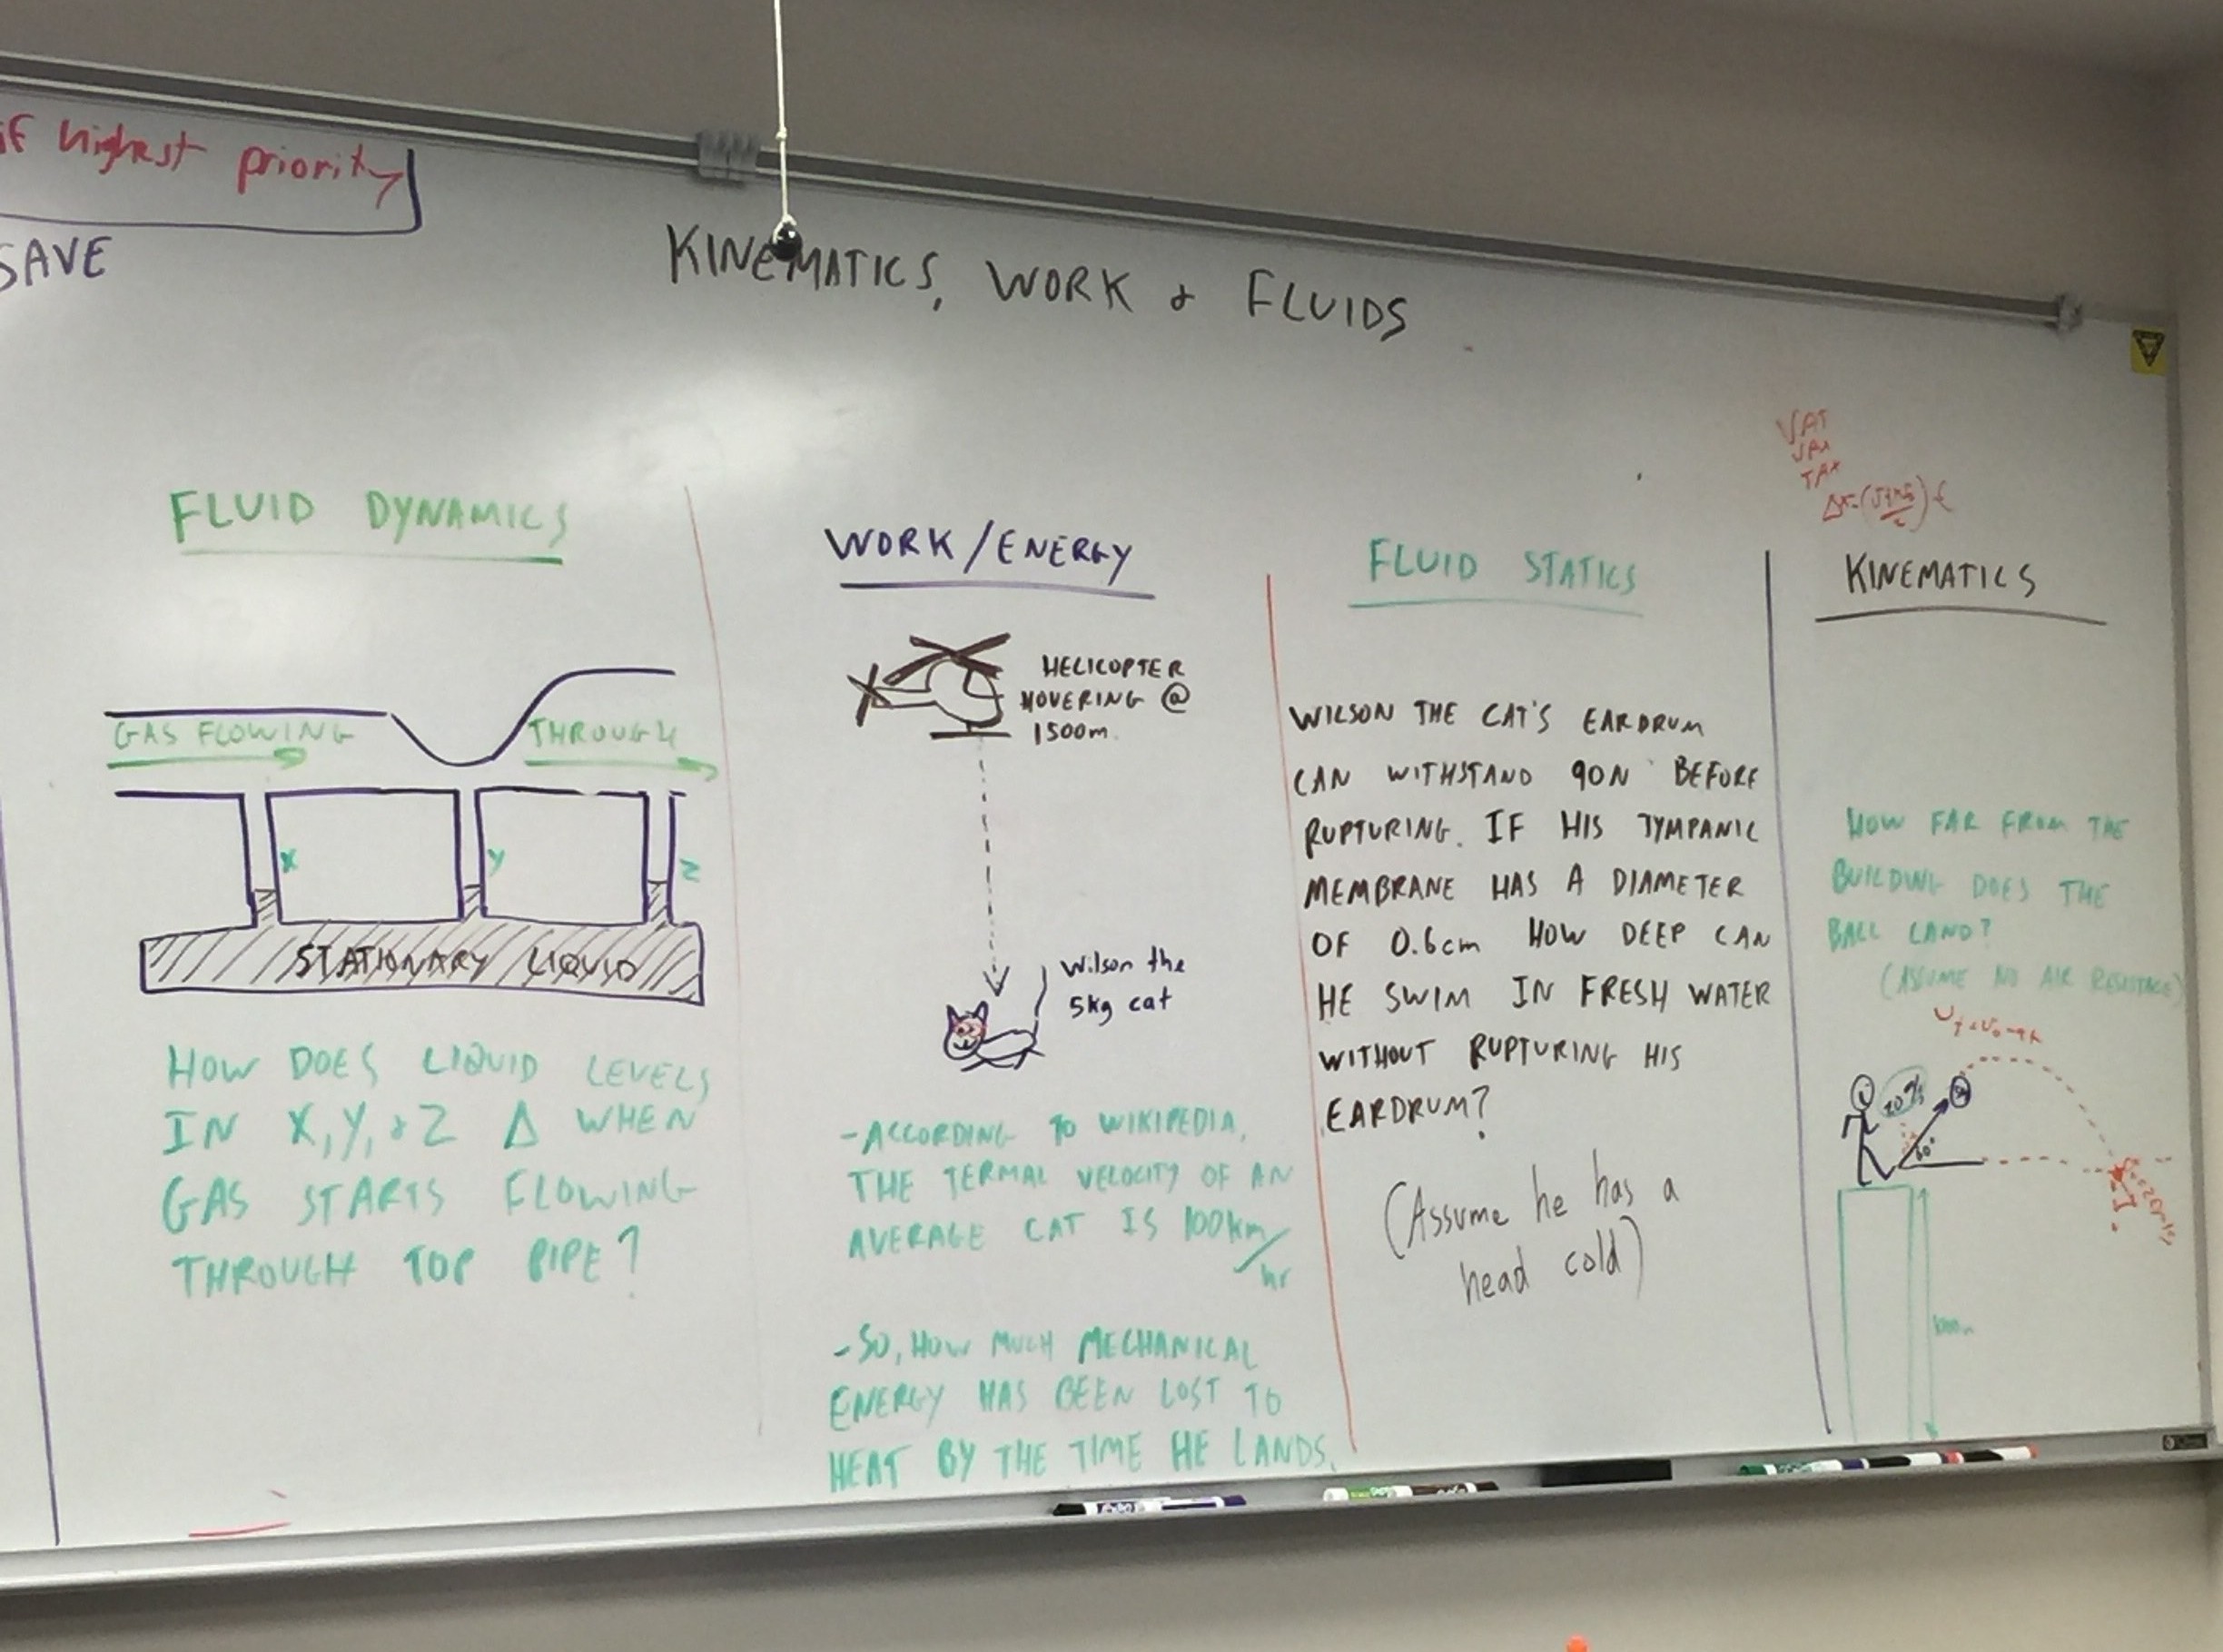 if highest priority
SAVE
KINEMATICS, WORK & FLUIDS
FLUID DYNAMICS
GAS FLOWING THROUGH
X Y Z
STATIONARY LIQUID
HOW DOES LIQUID LEVELS
IN X, Y, & Z Δ WHEN
GAS STARTS FLOWING
THROUGH TOP PIPE?
WORK/ENERGY
HELICOPTER
HOVERING @
1500m
Wilson the
5kg cat
-ACCORDING TO WIKIPEDIA,
THE TERMAL VELOCITY OF AN
AVERAGE CAT IS 100km/hr
-SO, HOW MUCH MECHANICAL
ENERGY HAS BEEN LOST TO
HEAT BY THE TIME HE LANDS.
FLUID STATICS
WILSON THE CAT'S EARDRUM
CAN WITHSTAND 90N BEFORE
RUPTURING. IF HIS TYMPANIC
MEMBRANE HAS A DIAMETER
OF 0.6cm HOW DEEP CAN
HE SWIM IN FRESH WATER
WITHOUT RUPTURING HIS
EARDRUM?
(Assume he has a
head cold)
VAT
VAX
TAX
KINEMATICS
HOW FAR FROM THE
BUILDING DOES THE
BALL LAND?
(ASSUME NO AIR RESISTACE)
60°